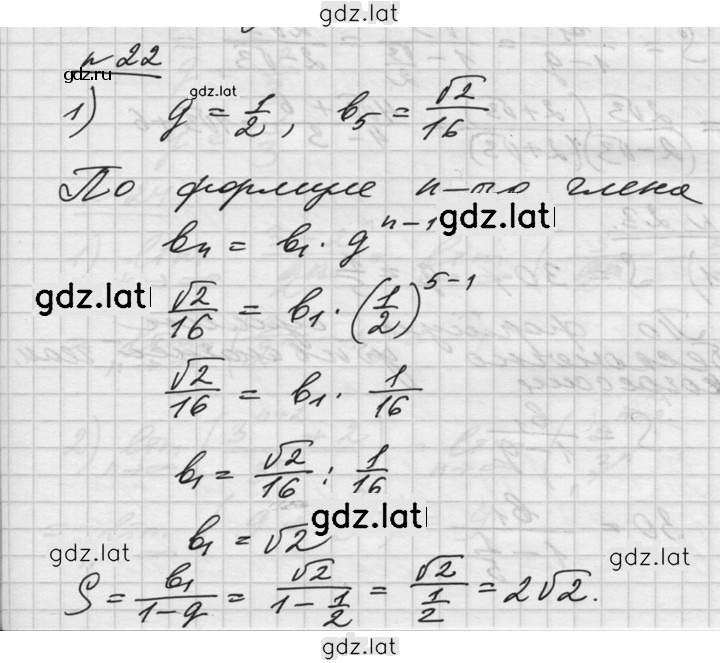 gdz.lat
№ 22
gdz.ru
gdz.lat
1) q = 1/2, b₅ = √2/16
По формуле n-го члена
bₙ = b₁ · qⁿ⁻¹
gdz.lat
gdz.lat
√2/16 = b₁ · (1/2)⁵⁻¹
√2/16 = b₁ · 1/16
b₁ = √2/16 : 1/16
gdz.lat
b₁ = √2
gdz.lat
gdz.lat
S = b₁/(1-q) = √2/(1 - 1/2) = √2/(1/2) = 2√2.
gdz.lat